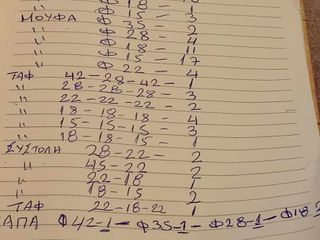 Φ 18 - 1
ΜΟΥΦΑ Φ 15 - 3
" Φ 35 - 2
" Φ 28 - 4
" Φ 18 - 11
" Φ 15 - 17
" Φ 22 - 4
ΤΑΦ 42-28-42 - 1
" 28-28-28 - 3
" 22-22-22 - 2
" 18-18-18 - 4
" 15-15-15 - 3
" 18-18-15 - 1
ΣΥΣΤΟΛΗ 28-22 - 2
" 45-22 - 2
" 22-18 - 1
" 18-15 - 2
ΤΑΦ 22-18-22 1
ΑΠΑ Φ42-1- Φ35-1- Φ28-1- Φ18-